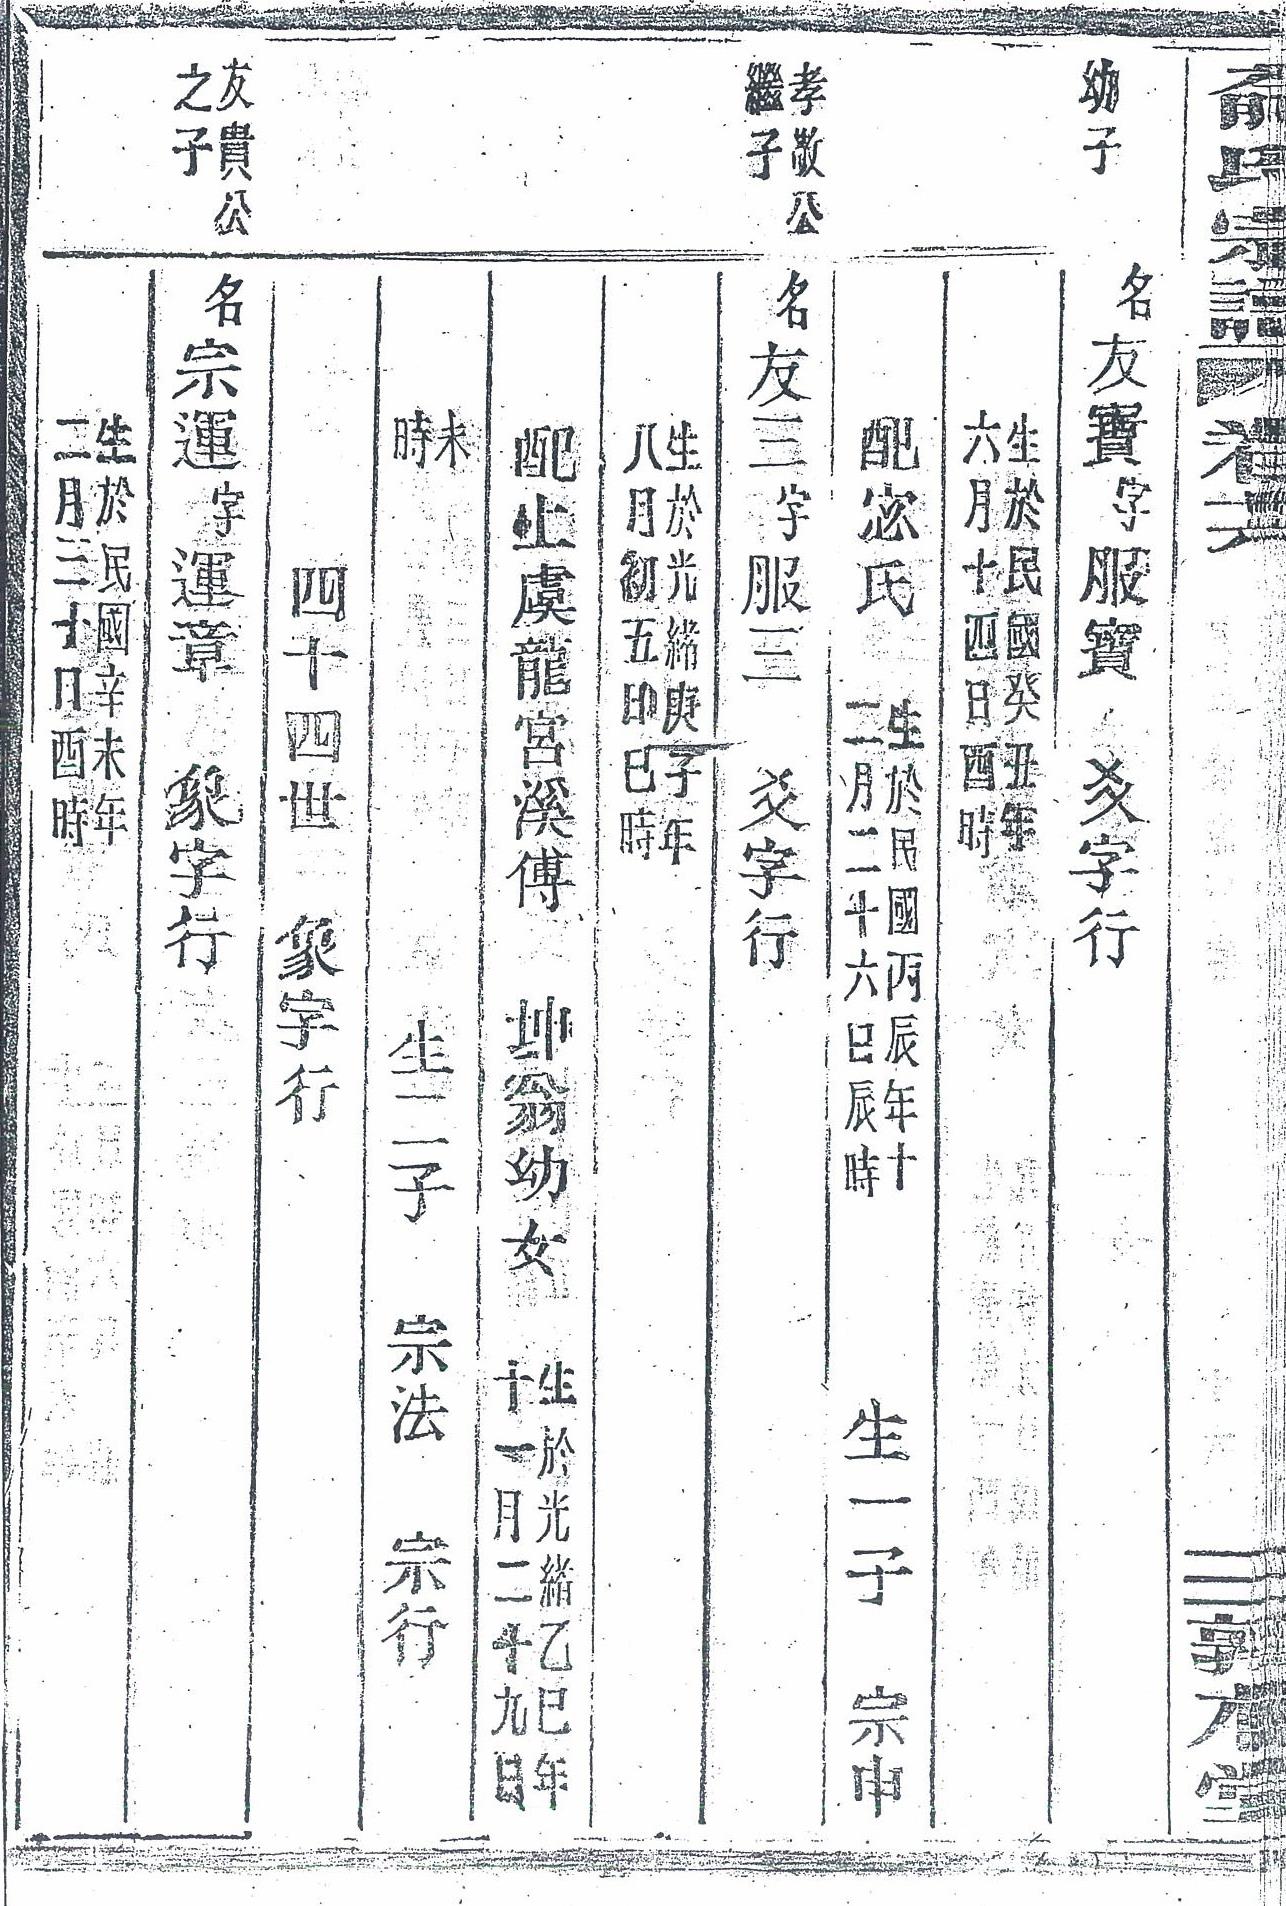 俞氏宗譜 卷六 三 敦本堂
幼子
名友寶字服寶 爻字行
生於民國癸丑年
六月十四日酉時
配宓氏
生於民國丙辰年十
二月二十六日辰時
生一子 宗申
孝敬公
繼子
名友三字服三 爻字行
生於光緒庚子年
八月初五日巳時
配上虞龍宮溪傅 坤翁幼女
生於光緒乙巳年
十一月二十九日
未
時
生二子 宗法 宗行
四十四世 象字行
友貴公
之子
名宗運字運章 象字行
生於民國辛未年
二月三十日酉時